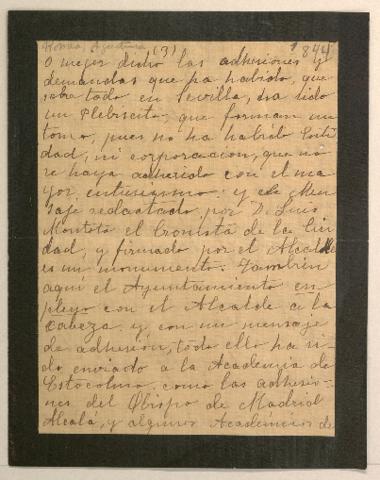 Ronda, Agustina (3) 1844
O mejor dicho las adhesiones y
demandas que ha habido, que
sobre todo en Sevilla, ha sido
un Plebiscito, que forman un
tomo, pues no ha habido Enti
dad, ni corporacion, que no
se haya adherido con el ma
yor entusiasmo: y el Men
saje redactado por D. Luis
Montoto el Cronista de la Ciu
dad, y firmado por el Alcalde
es un monumento. Tambien
aqui el Ayuntamiento en
pleyo con el Alcalde á la
Cabeza y, con un mensaje
de adhesión, todo ello ha si
do enviado a la Academia de
Estocolmo, como las adhesio
nes del Obispo de Madrid
Alcalá, y algunos Académicos de